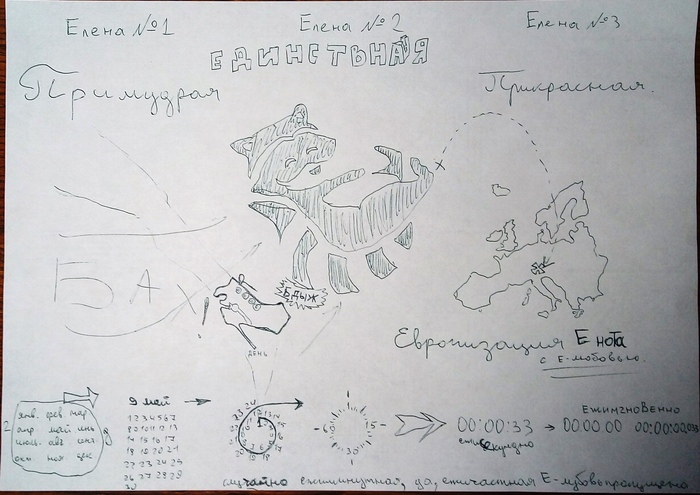 Елена №1 Елена №2 Елена №3
ЕДИНСТЬНАЯ
Примудрая Прикрасная.
БАХ!
БДЫЖ
ДЕНЬ
Европизация Енота
с Е-мобовью.
9 май
янв. фев мар
апр май июн
июль. авг сент.
окт ноя дек
1 2 3 4 5 6 7
8 9 10 11 12 13
14 15 16 17
18 19 20 21
22 23 24 25
26 27 28 29
30
60 15 30
00:00:33 → 00.00.00 00:00:00,033
ежисекундно
ЕЖИМГНОВЕННО
случайно ежиминутная, да, ежичастная